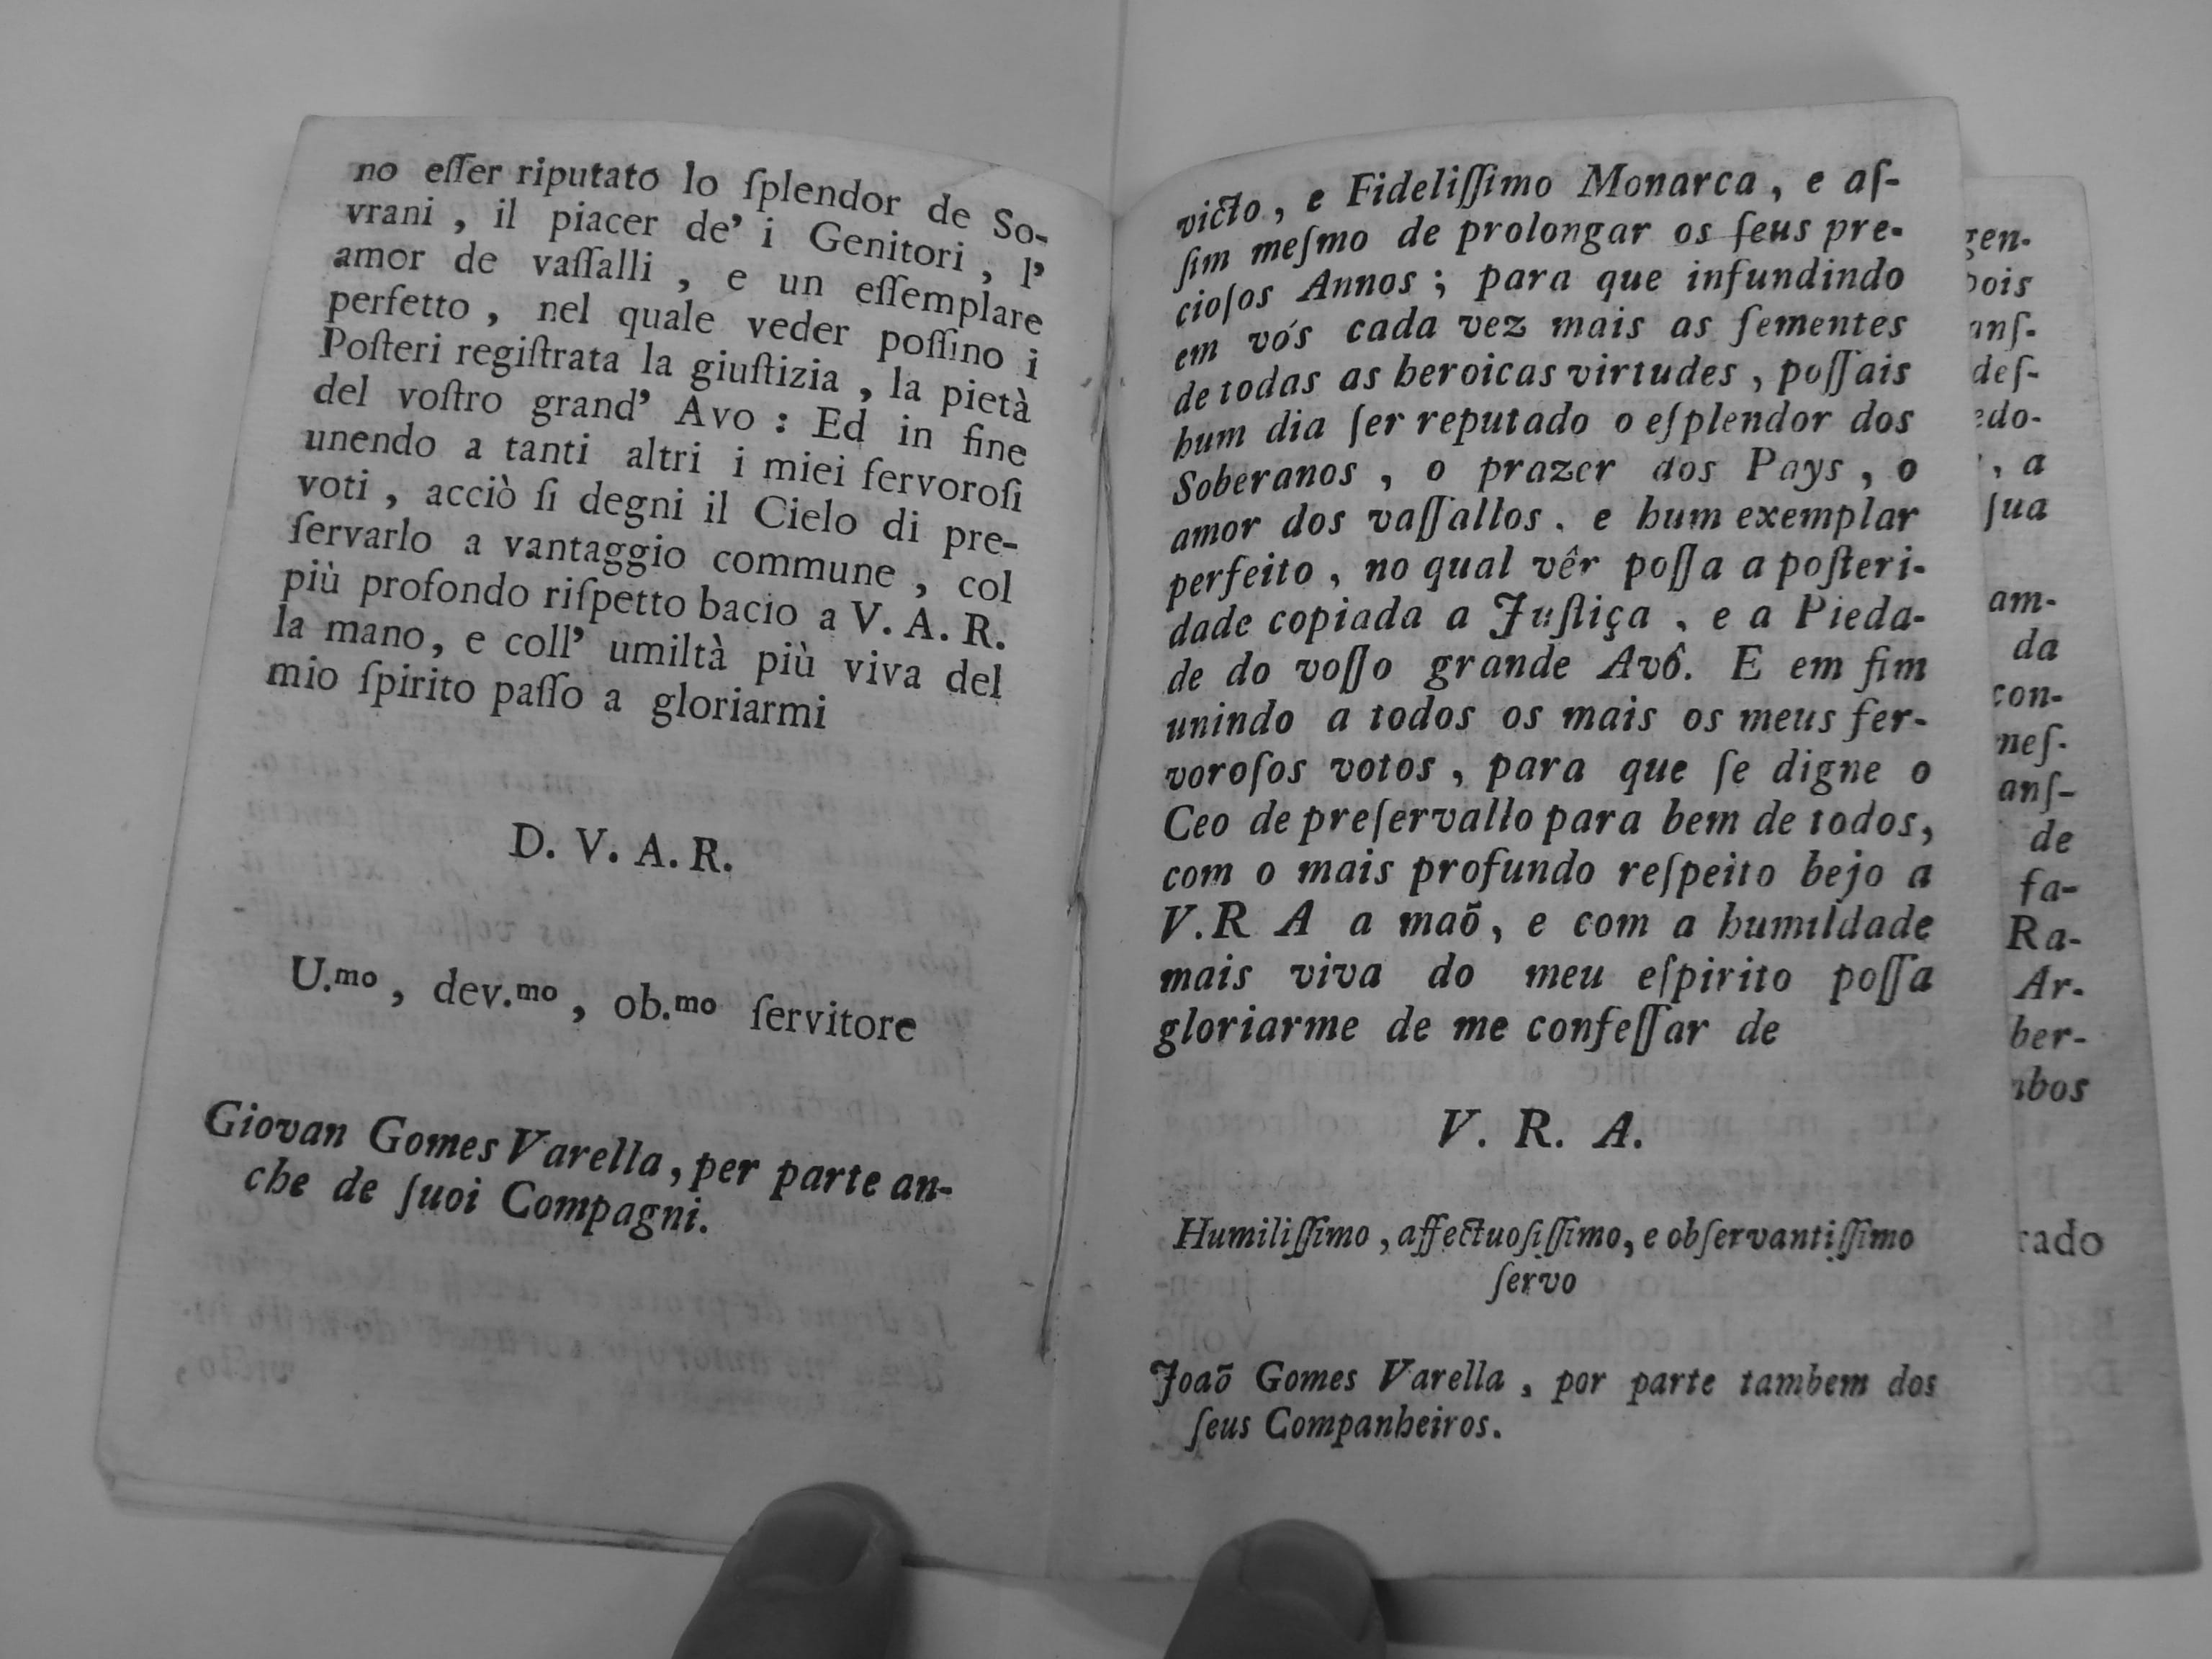 no eſſer riputato lo ſplendor de So-
vrani , il piacer de' i Genitori , l'
amor de vaſſalli , e un eſſemplare
perfetto , nel quale veder poſſino i
Poſteri regiſtrata la giuſtizia , la pietà
del voſtro grand' Avo : Ed in fine
unendo a tanti altri i miei fervoroſi
voti , acciò ſi degni il Cielo di pre-
ſervarlo a vantaggio commune , col
più profondo riſpetto bacio a V. A. R.
la mano, e coll' umiltà più viva del
mio ſpirito paſſo a gloriarmi
D. V. A. R.
U.mo , dev.mo , ob.mo ſervitore
Giovan Gomes Varella, per parte an-
che de ſuoi Compagni.
victo, e Fideliſſimo Monarca, e aſ-
ſim meſmo de prolongar os ſeus pre-
cioſos Annos ; para que infundindo
em vós cada vez mais as ſementes
de todas as heroicas virtudes, poſſais
hum dia ſer reputado o eſplendor dos
Soberanos , o prazer dos Pays , o
amor dos vaſſallos, e hum exemplar
perfeito, no qual vêr poſſa a poſteri-
dade copiada a Juſtiça , e a Pieda-
de do voſſo grande Avô. E em fim
unindo a todos os mais os meus fer-
voroſos votos , para que ſe digne o
Ceo de preſervallo para bem de todos,
com o mais profundo reſpeito bejo a
V.R A a maõ, e com a humildade
mais viva do meu eſpirito poſſa
gloriarme de me confeſſar de
V. R. A.
Humiliſſimo, affectuoſiſſimo, e obſervantiſſimo
ſervo
Joaõ Gomes Varella, por parte tambem dos
ſeus Companheiros.